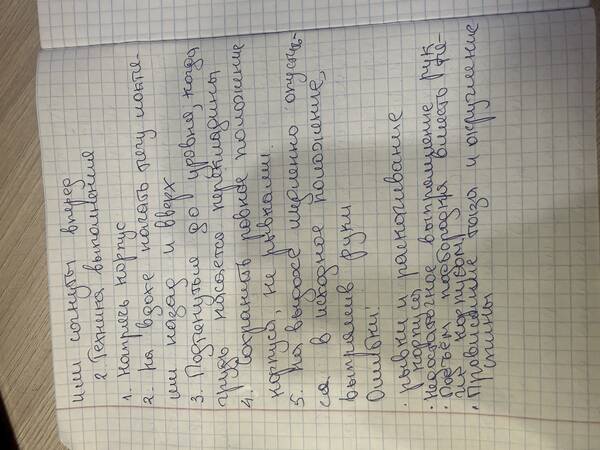 или согнуты вперед
2 Техника выполнения
1. Напрячь корпус
2. на вдохе начать тягу локтя-
ми назад и вверх
3. Подтянуться до уровня, когда
грудь касается перекладины
4. Сохранить ровное положение
корпуса, не рывками.
5. на выдохе медленно опустить-
ся в исходное положение,
выпрямив руки
Ошибки:
· рывки и раскачивание
корпуса
· Недостаточное выпрямление рук
· Подъём подбородка вместо тя-
ги корпусом
· Провисание таза и округление
спины